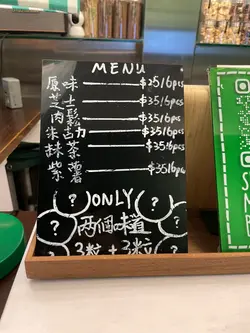 MENU
原味 $25/6pcs
芝士 $35/6pcs
肉鬆 $35/6pcs
朱古力 $35/6pcs
抹茶 $35/6pcs
紫薯 $35/6pcs
? ONLY ?
? 两個味道 ?
? 3粒 + 3粒 ?